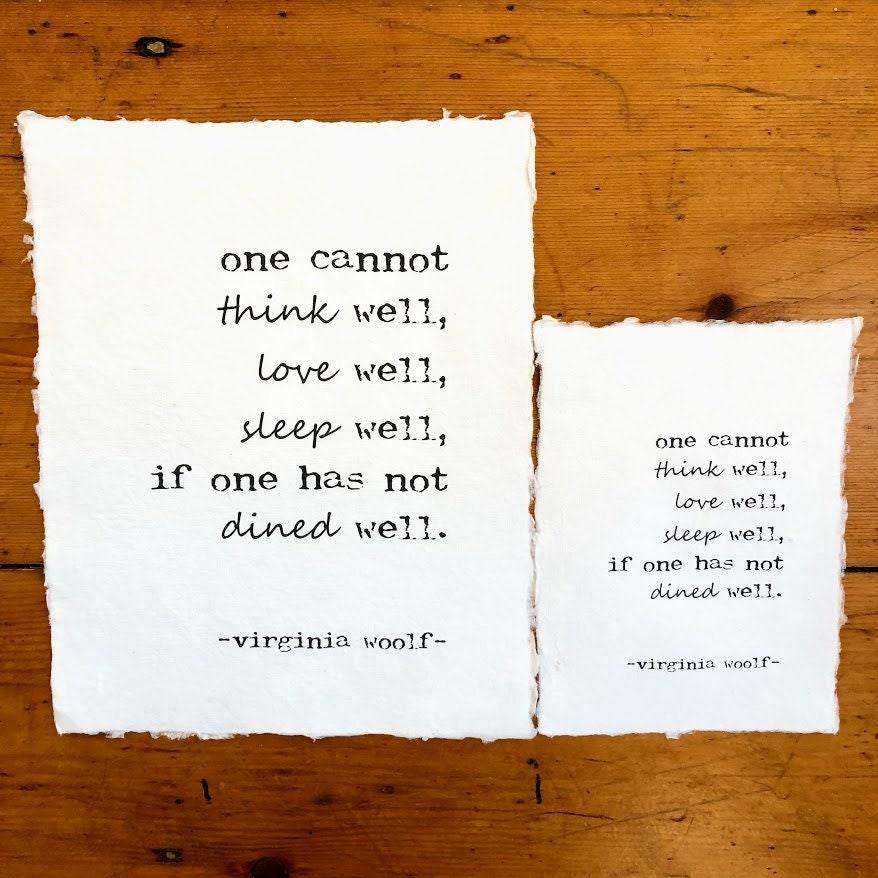 one cannot
think well,
love well,
sleep well,
if one has not
dined well.
-virginia woolf-
one cannot
think well,
love well,
sleep well,
if one has not
dined well.
-virginia woolf-